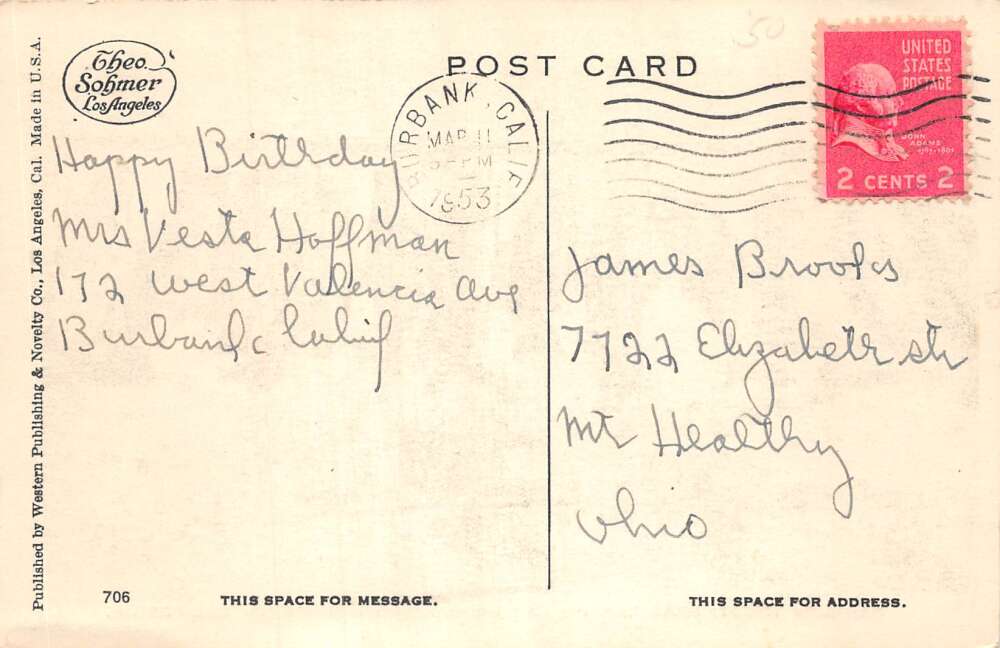 Theo.
Sohmer
Los Angeles
POST CARD
BURBANK, CALIF
MAR 11
PM
1953
UNITED
STATES
POSTAGE
JOHN
ADAMS
2 CENTS 2
50
Happy Birthday
Mrs Vesta Hoffman
172 West Valencia Ave
Burbank Calif
James Brooks
7722 Elizabeth str
Mt Healthy
Ohio
Published by Western Publishing & Novelty Co., Los Angeles, Cal. Made in U.S.A.
706
THIS SPACE FOR MESSAGE.
THIS SPACE FOR ADDRESS.